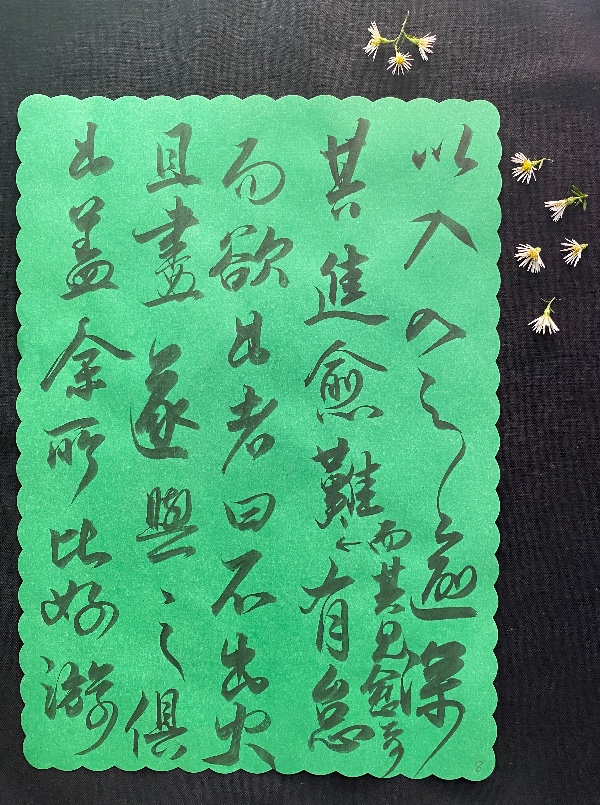 以入入之逾深
其進愈難有怠
而其見愈奇
而欲出者曰不出火
且盡遂與之俱
出蓋余所比好游
8